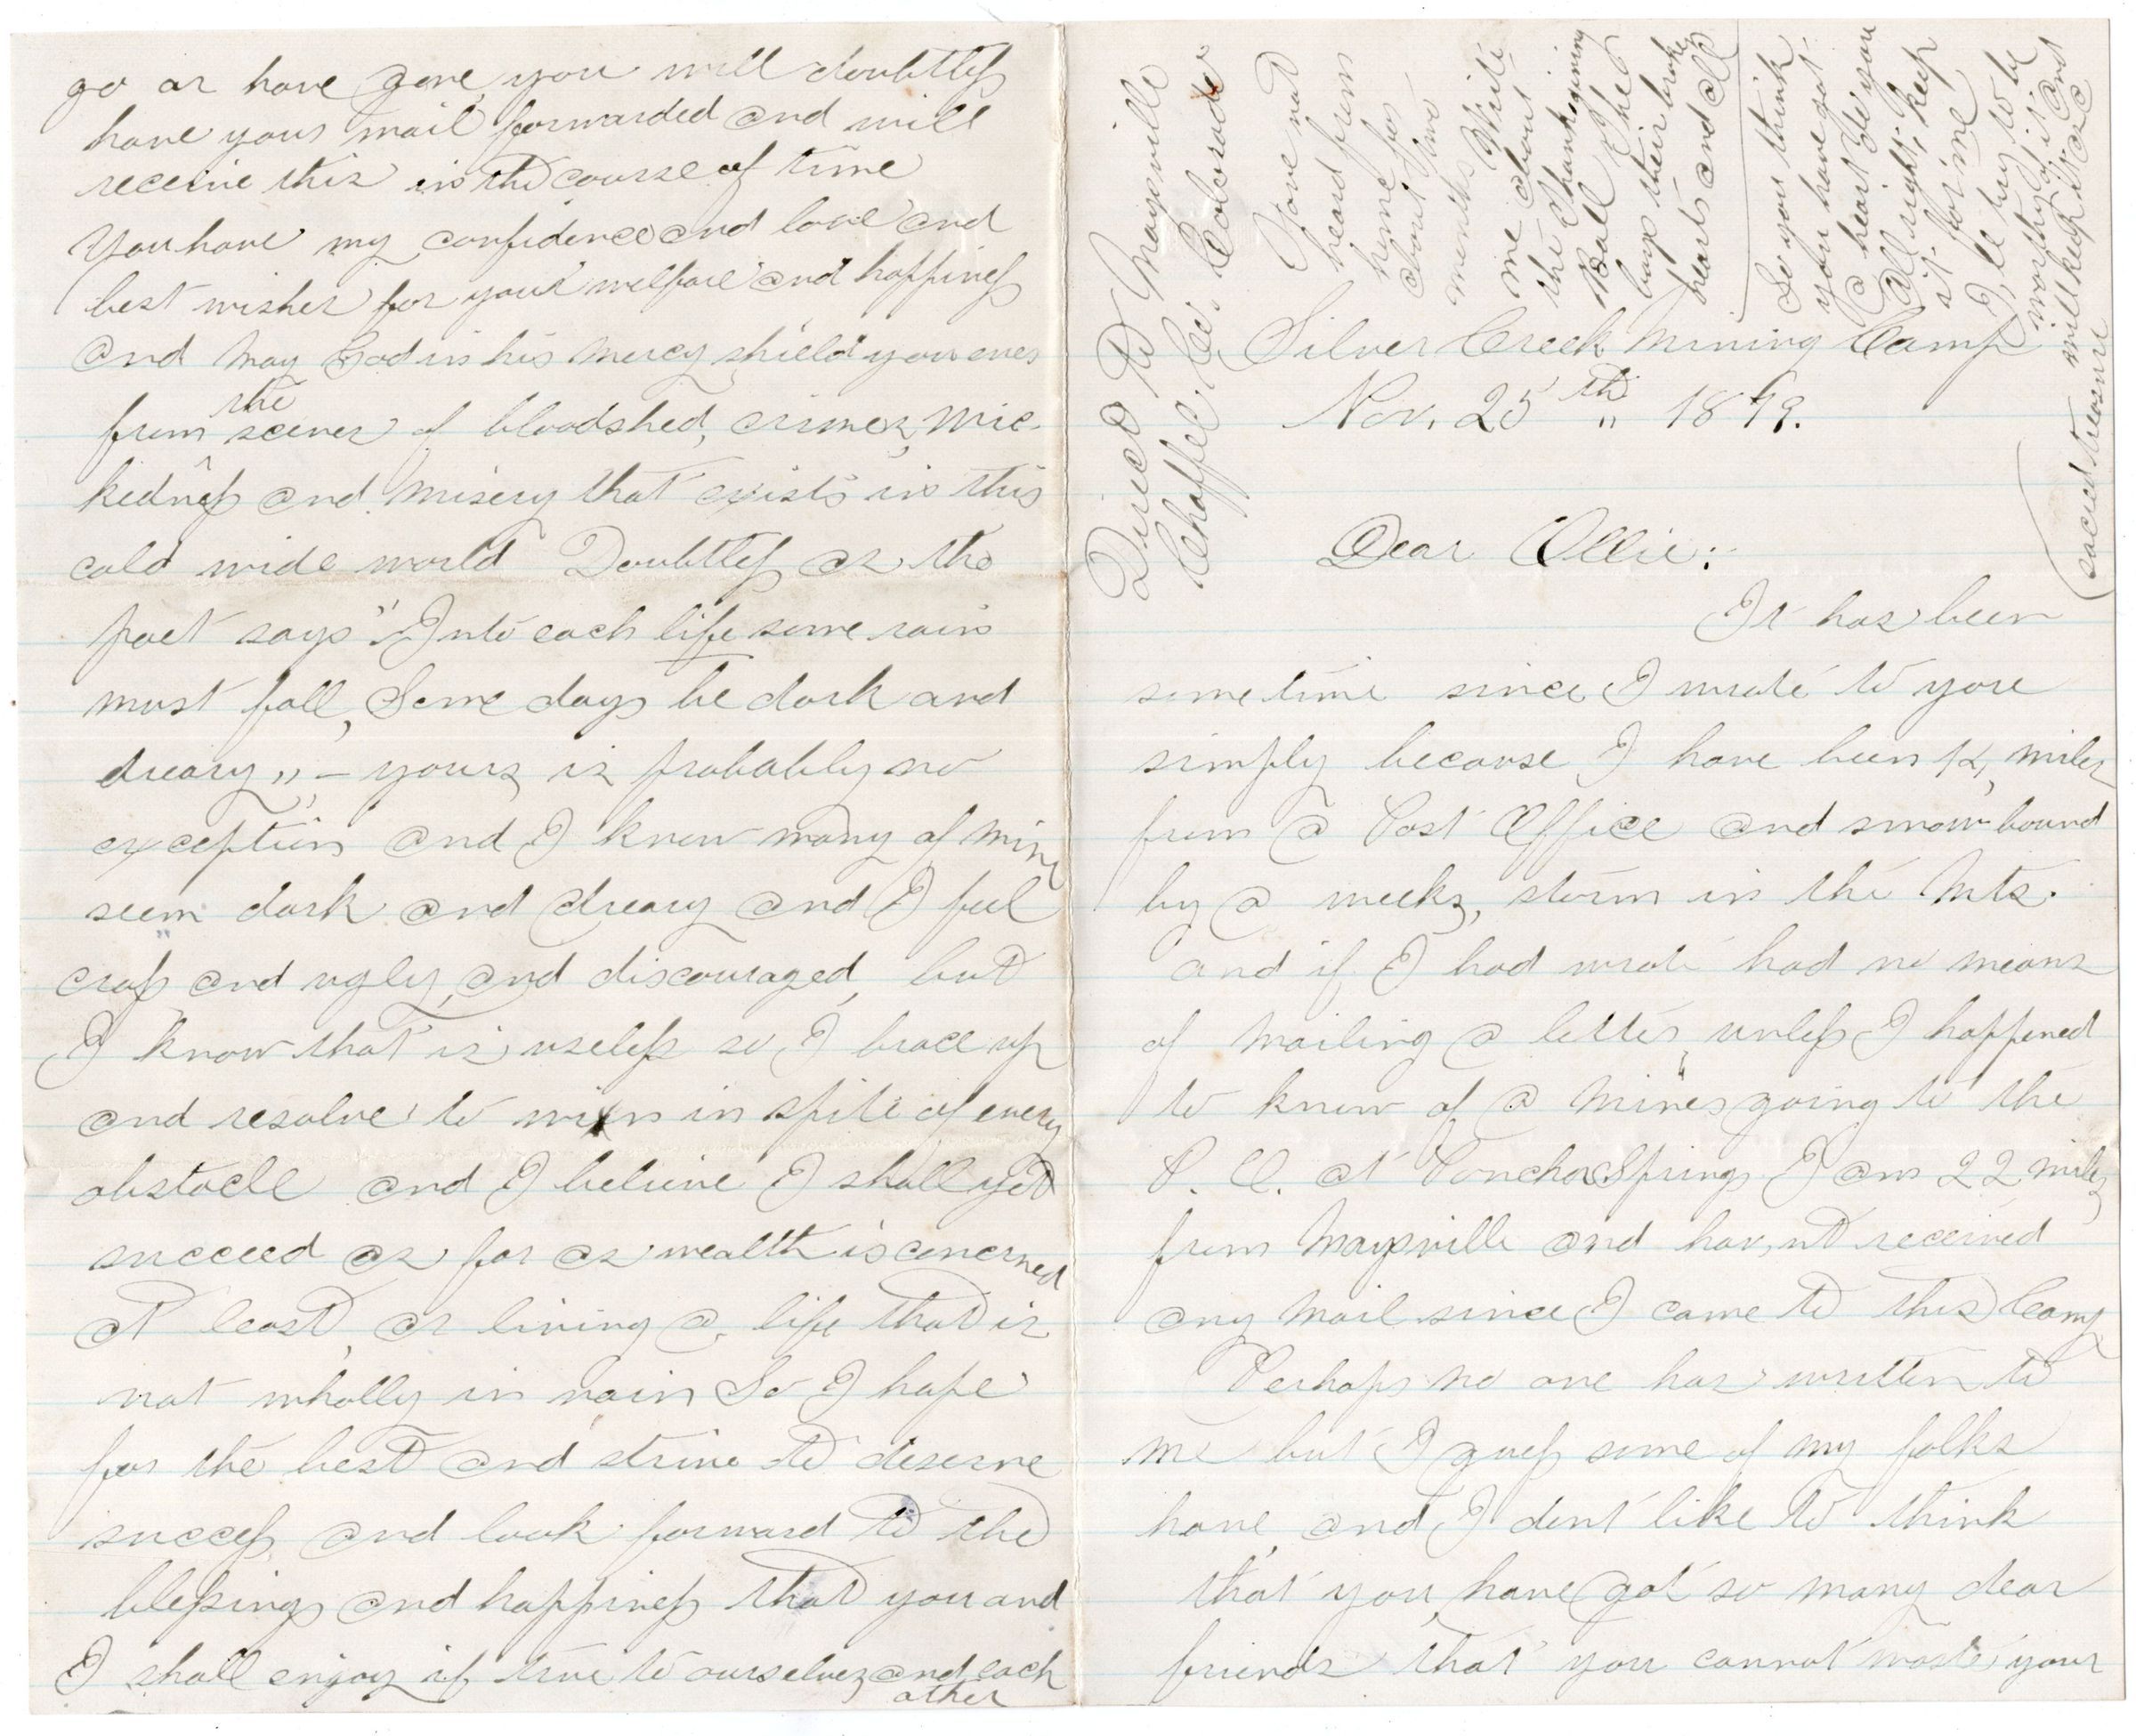 Silver Creek Mining Camp
Nov. 25th " 1879.
Dear Ollie:
It has been
sometime since I wrote to you
simply because I have been 12, miles
from a Post Office and snow bound
by a weeks, storm in the Mts.
and if I had wrote had no means
of mailing a letter, unless I happened
to know of a miner going to the
P. O. at Poncha Springs I am 22 miles
from Maysville and hav,nt received
any mail since I came to this Camp
Perhaps no one has written to
me but I guess some of my folks
have, and I dont like to think
that you have got so many dear
friends that you cannot waste your
go or have gone, you will doubtless
have your mail forwarded and will
receive this in the course of time
You have my confidence and love and
best wishes for your welfare and happiness
and may God in his mercy shield you ever
from the scenes of bloodshed, crimes, wic-
kedness and misery that exists in this
cold wide world Doubtless as the
poet says "Into each life some rain
must fall, Some days be dark and
dreary," - yours, is probably no
exception and I know many of mine
seem dark and dreary and I feel
cross and ugly and discouraged, but
I know that is useless so I brace up
and resolve to win in spite of every
obstacle and I believe I shall yet
succeed as far as wealth is concerned
at least, or living a life that is
not wholly in vain So I hope
for the best and strive to deserve
success, and look forward to the
blessings and happiness that you and
I shall enjoy if true to ourselves and each
other
Direct to Maysville
Chaffee Co. Colorado
Have not
heard from
home for
about two
months Write
me about
the Thanksgiving
Ball & the
boys their broken
hearts and all
So you think
you have got
a heart do you
All right, keep
it for me
I,ll try to be
worthy of it and
will keep it as a
(sacred treasure